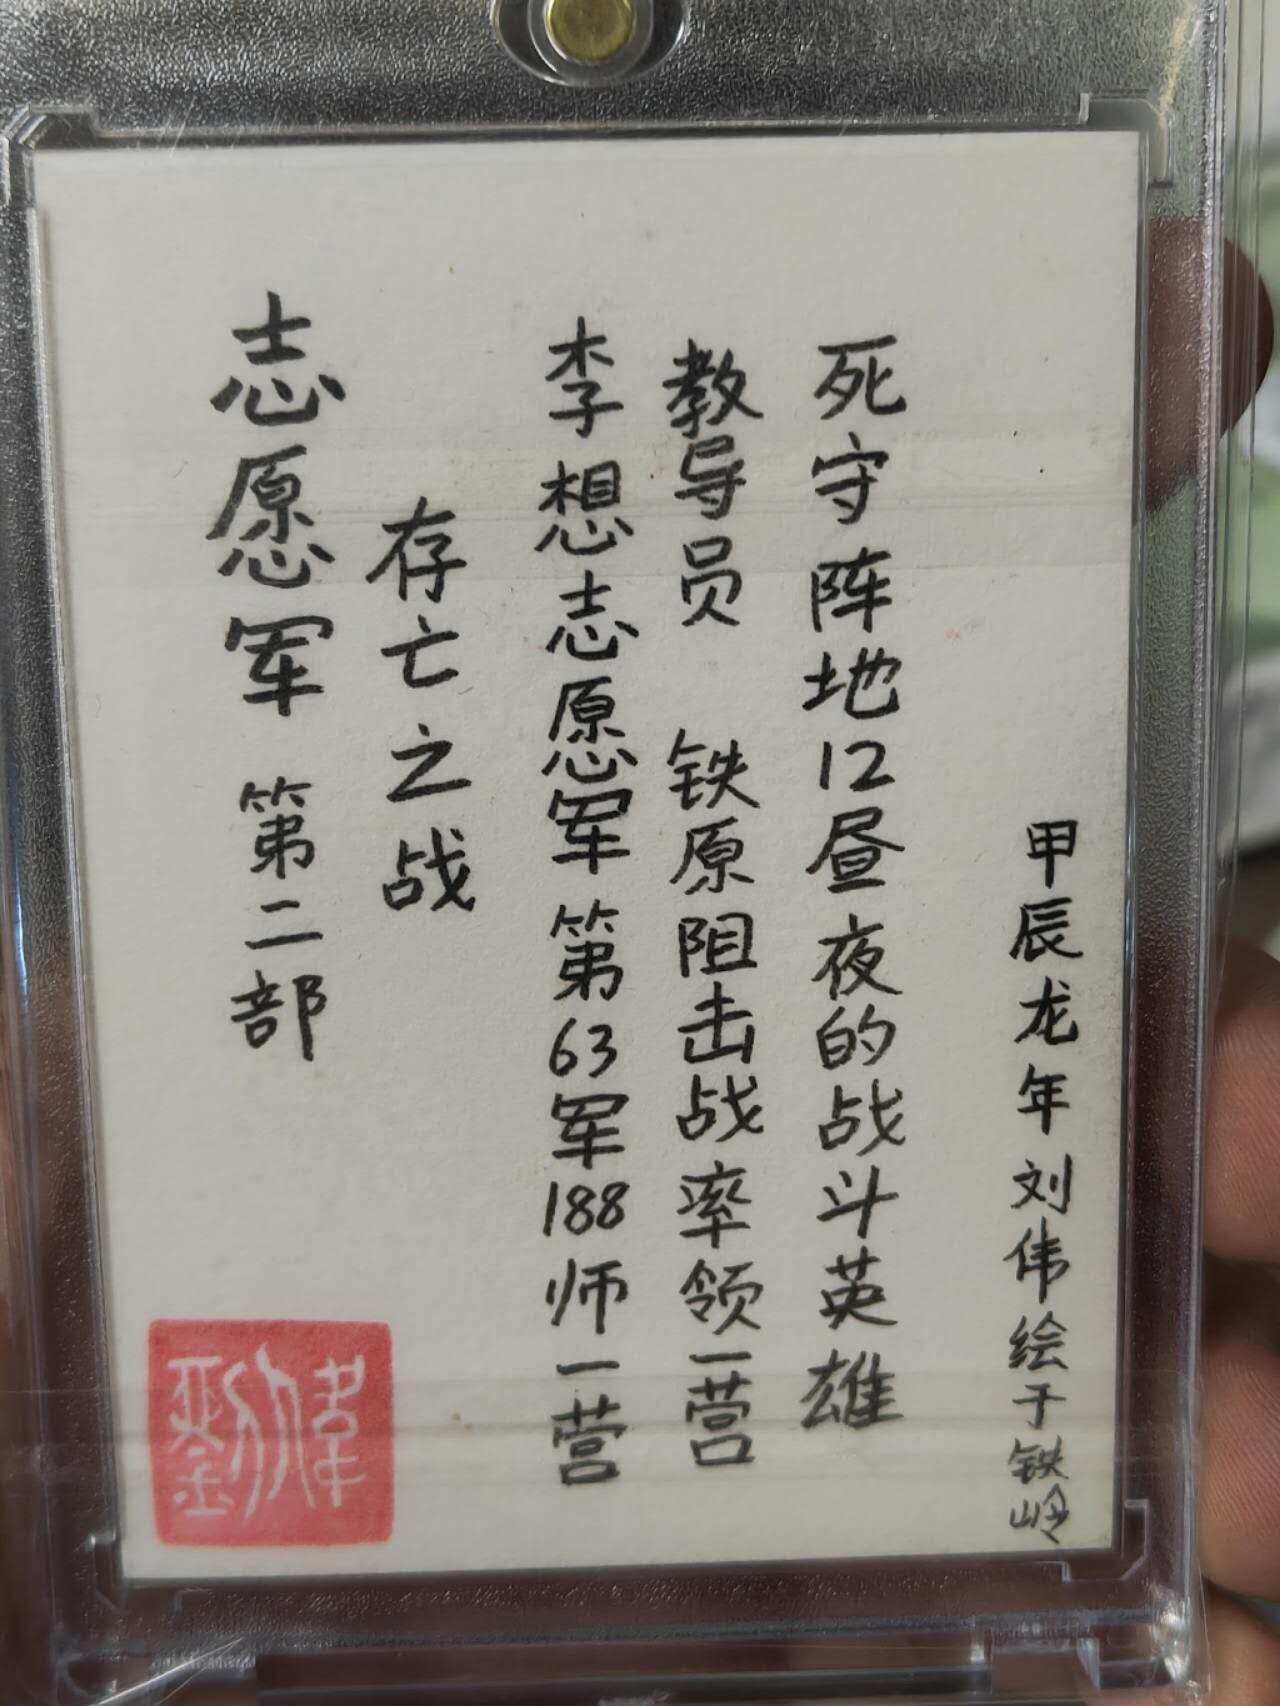 志愿军 第二部
存亡之战
李想志愿军第63军188师一营
教导员 铁原阻击战率领一营
死守阵地12昼夜的战斗英雄
甲辰龙年 刘伟绘于铁岭
劉偉